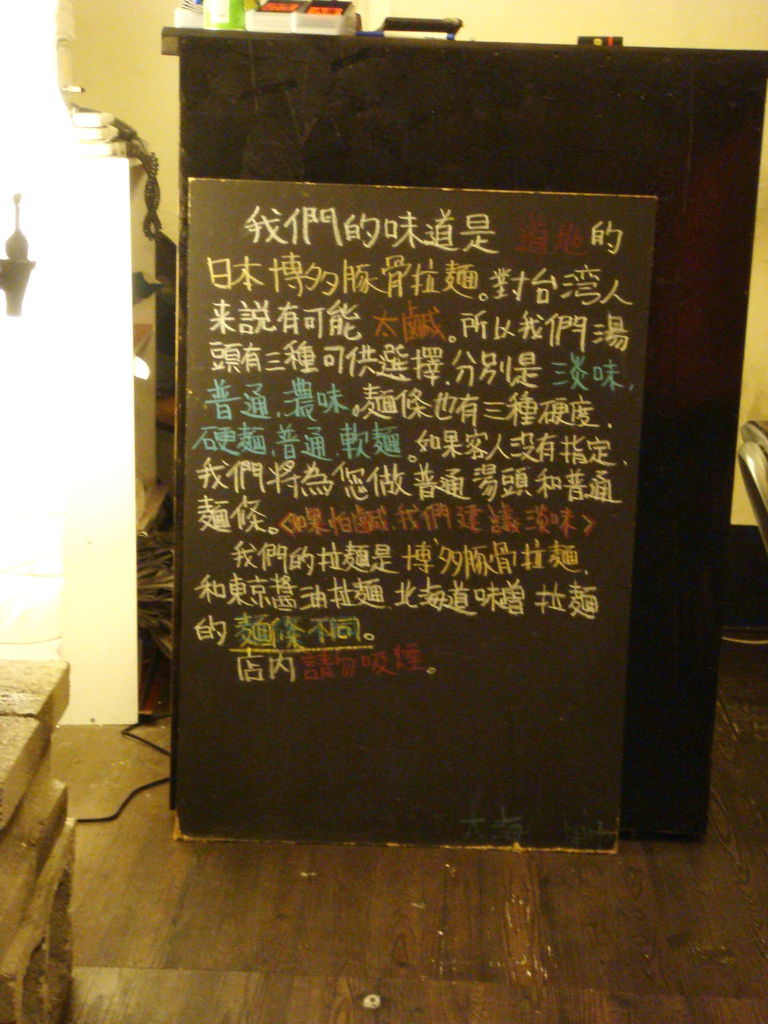 我們的味道是 道地的
日本博多豚骨拉麵。對台湾人
来說有可能 太鹹。所以我們湯
頭有三種可供選擇.分別是 淡味.
普通.濃味。麵條也有三種硬度.
硬麵.普通.軟麵。如果客人没有指定.
我們將為您做普通湯頭和普通
麵條。<如果怕鹹.我們建議淡味>
我們的拉麵是 博多豚骨拉麵.
和東京醬油拉麵.北海道味噌 拉麵
的 麵條不同。
店内 請勿吸煙。